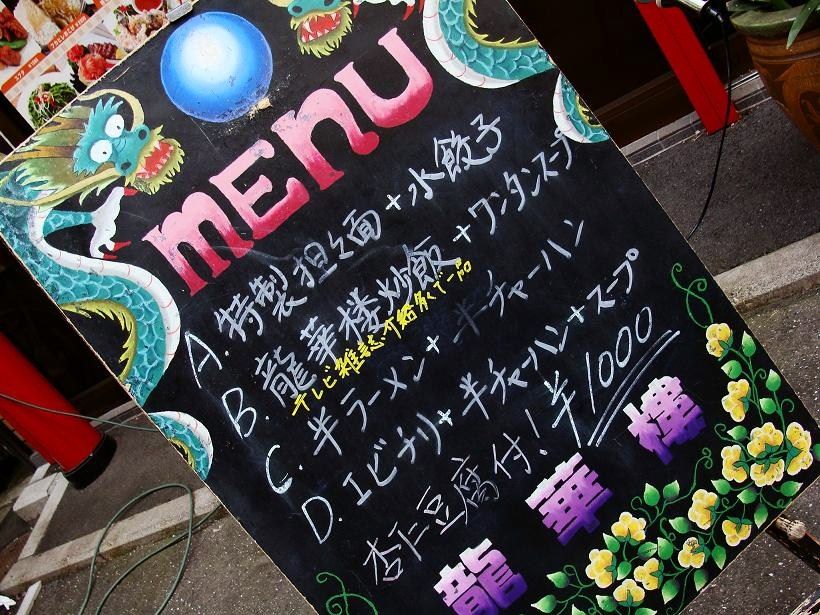 MENU
A. 特製担々面+水餃子
B. 龍華楼炒飯+ワンタンスープ
テレビ雑誌介紹名品
C. 半ラーメン+半チャーハン
D. エビチリ+半チャーハン+スープ
杏仁豆腐付!¥1000
龍華樓